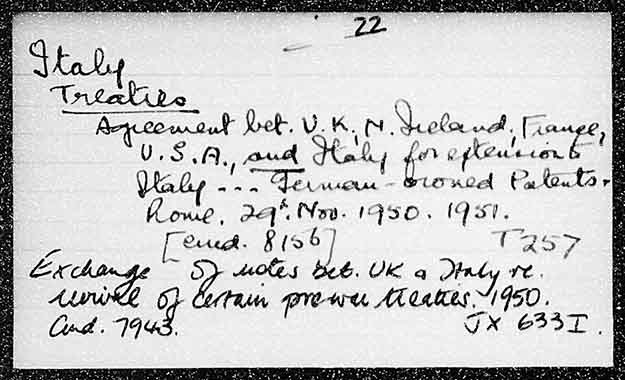 22
Italy
Treaties
Agreement bet. U.K., N. Ireland, France,
U.S.A., and Italy for extension to
Italy --- German-owned Patents.
Rome, 29th. Nov. 1950. 1951.
[cmd. 8156] T257
Exchange of notes bet. UK & Italy re.
revival of certain prewar treaties. 1950.
Cmd. 7943. JX 633I.